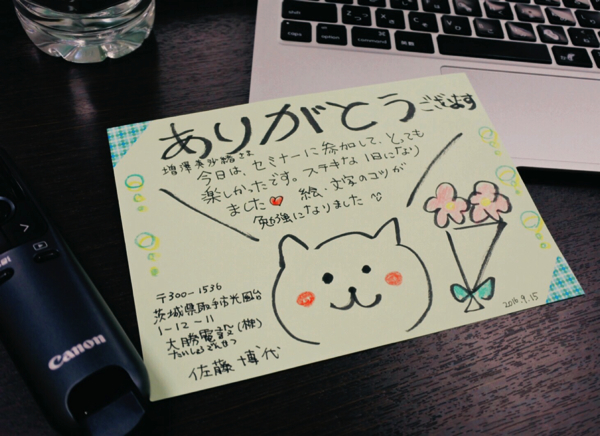 ありがとうございます
増澤美沙緒さま
今日は、セミナーに参加して、とっても
楽しかったです。ステキな1日になり
ました 絵、文字のコツが
勉強になりました
〒300-1536
茨城県取手市光風台
1-12-11
大勝電設(株)
佐藤 博代
2016.9.15
Canon
option
command
control
option